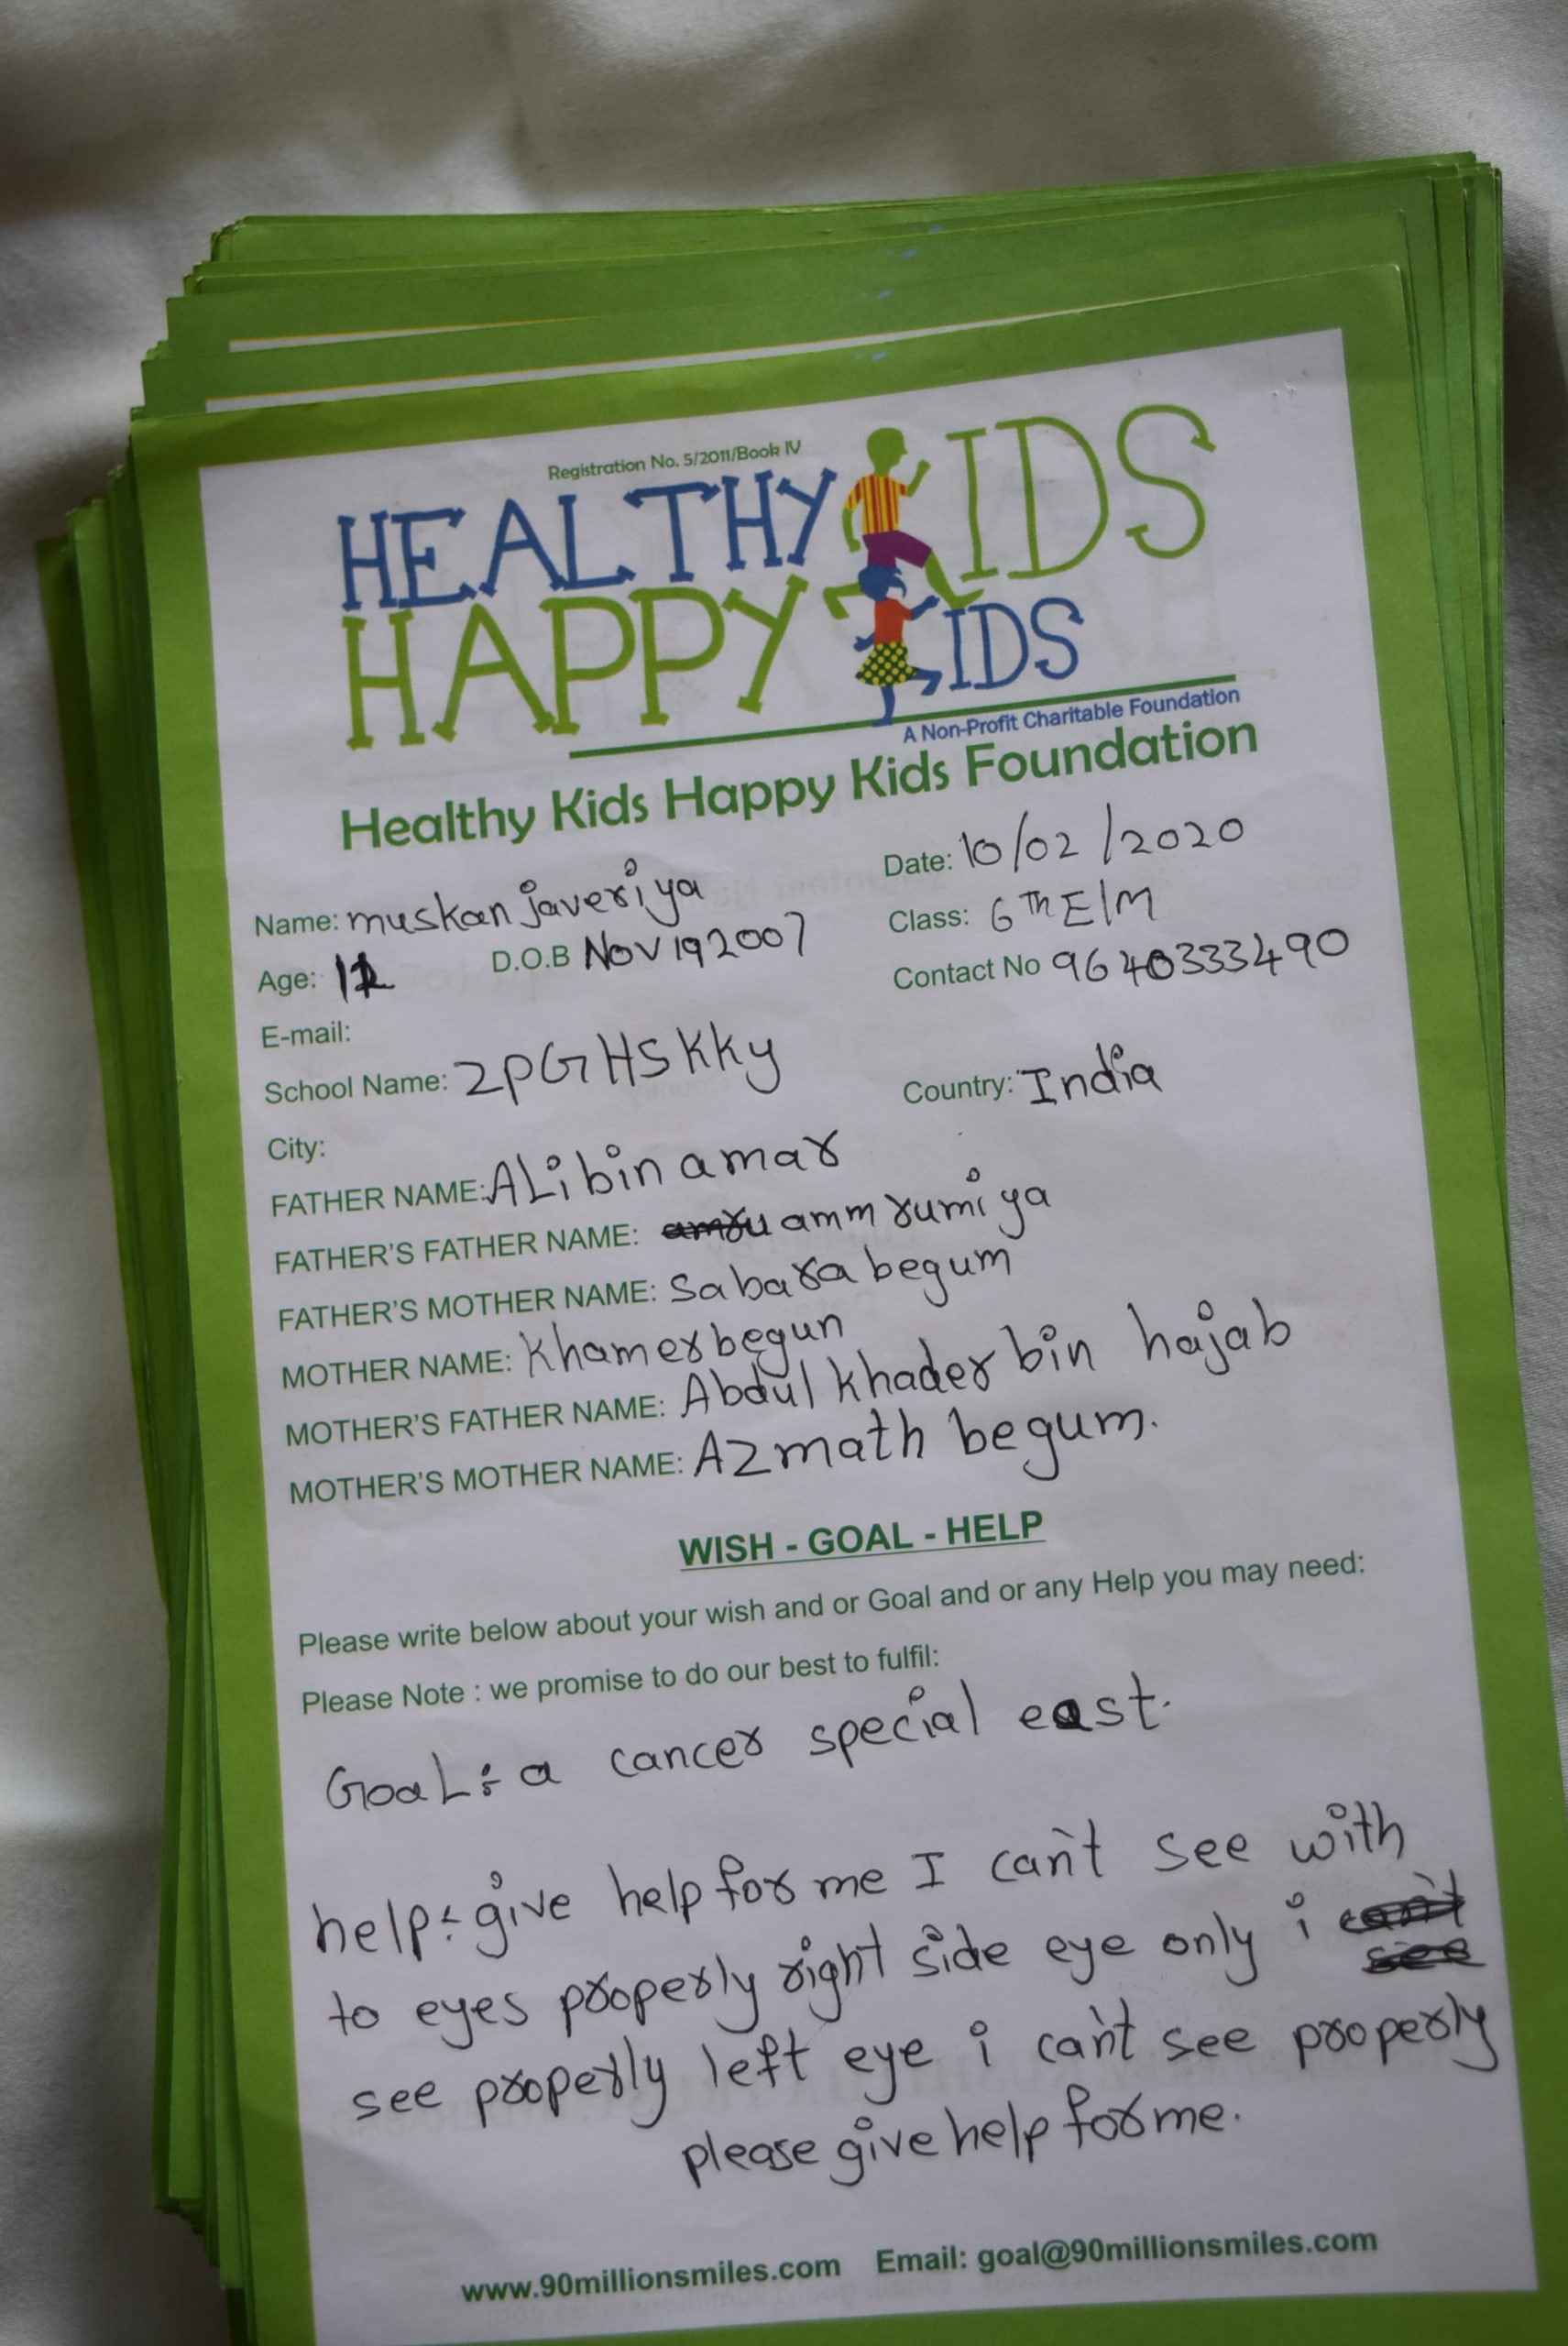 Registration No. 5/2011/Book IV
HEALTHY KIDS
HAPPY KIDS
A Non-Profit Charitable Foundation
Healthy Kids Happy Kids Foundation
Date: 10/02/2020
Name: muskan javeriya
Class: 6th E/M
Age: 12 D.O.B NOV 19 2007
Contact No 9640333490
E-mail:
School Name: ZPGHS KKy
Country: India
City:
FATHER NAME: ALi bin amar
FATHER'S FATHER NAME: amm rumiya
FATHER'S MOTHER NAME: Sabara begum
MOTHER NAME: Khamer begun
MOTHER'S FATHER NAME: Abdul khader bin hajab
MOTHER'S MOTHER NAME: Azmath begum.
WISH - GOAL - HELP
Please write below about your wish and or Goal and or any Help you may need:
Please Note : we promise to do our best to fulfil:
GoaL: a cancer special east.
help: give help for me I can't see with
to eyes properly right side eye only i can't see
see properly left eye i can't see properly
please give help for me.
www.90millionsmiles.com Email: goal@90millionsmiles.com